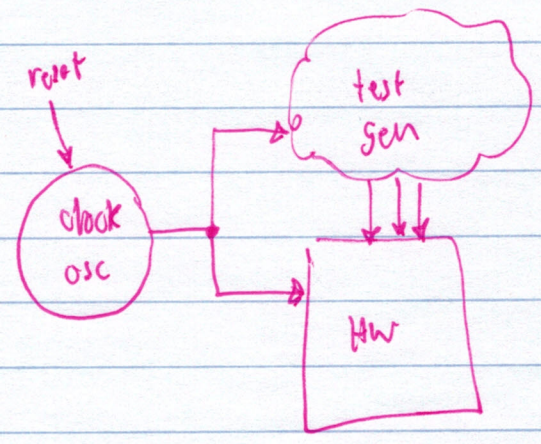 reset
clock
osc
test
gen
HW